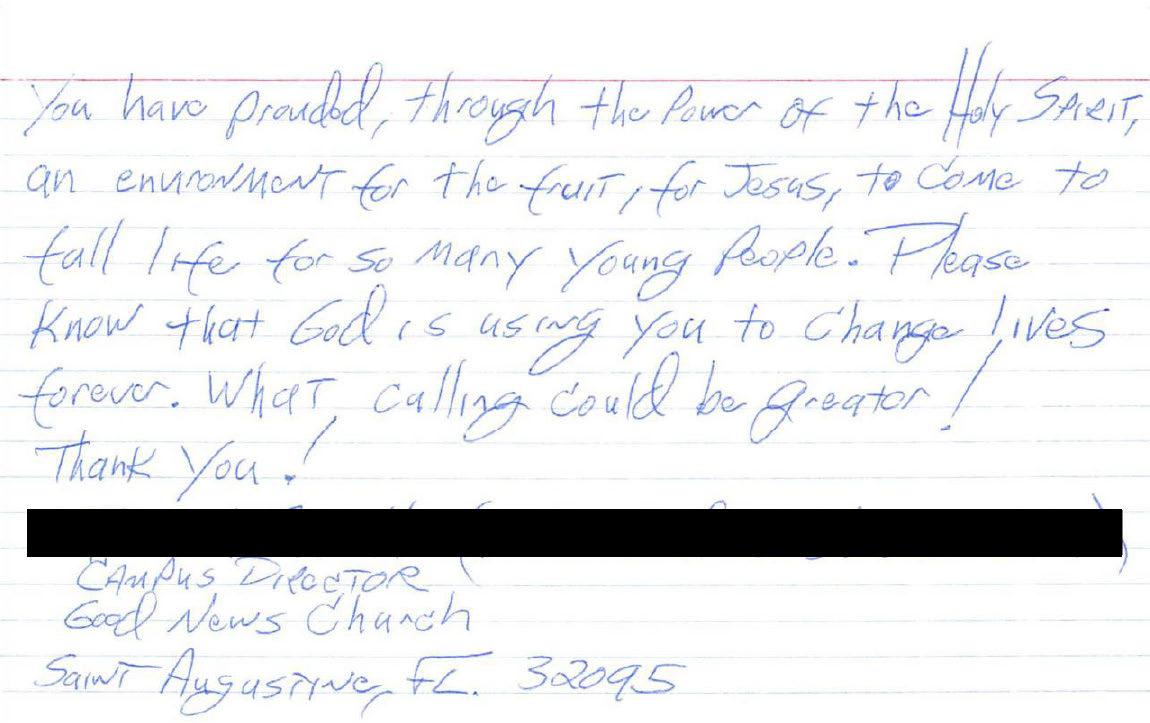 You have provided, through the Power of the Holy Spirit,
an environment for the fruit, for Jesus, to come to
full life for so many young People. Please
Know that God is using you to change lives
forever. What calling could be greater!
Thank You!
Campus Director
Good News Church
Saint Augustine, FL. 32095